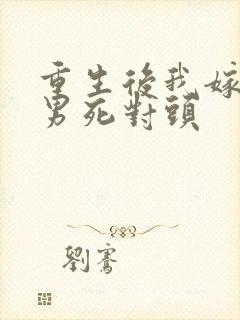 重生後我嫁
男死對頭
劉騫